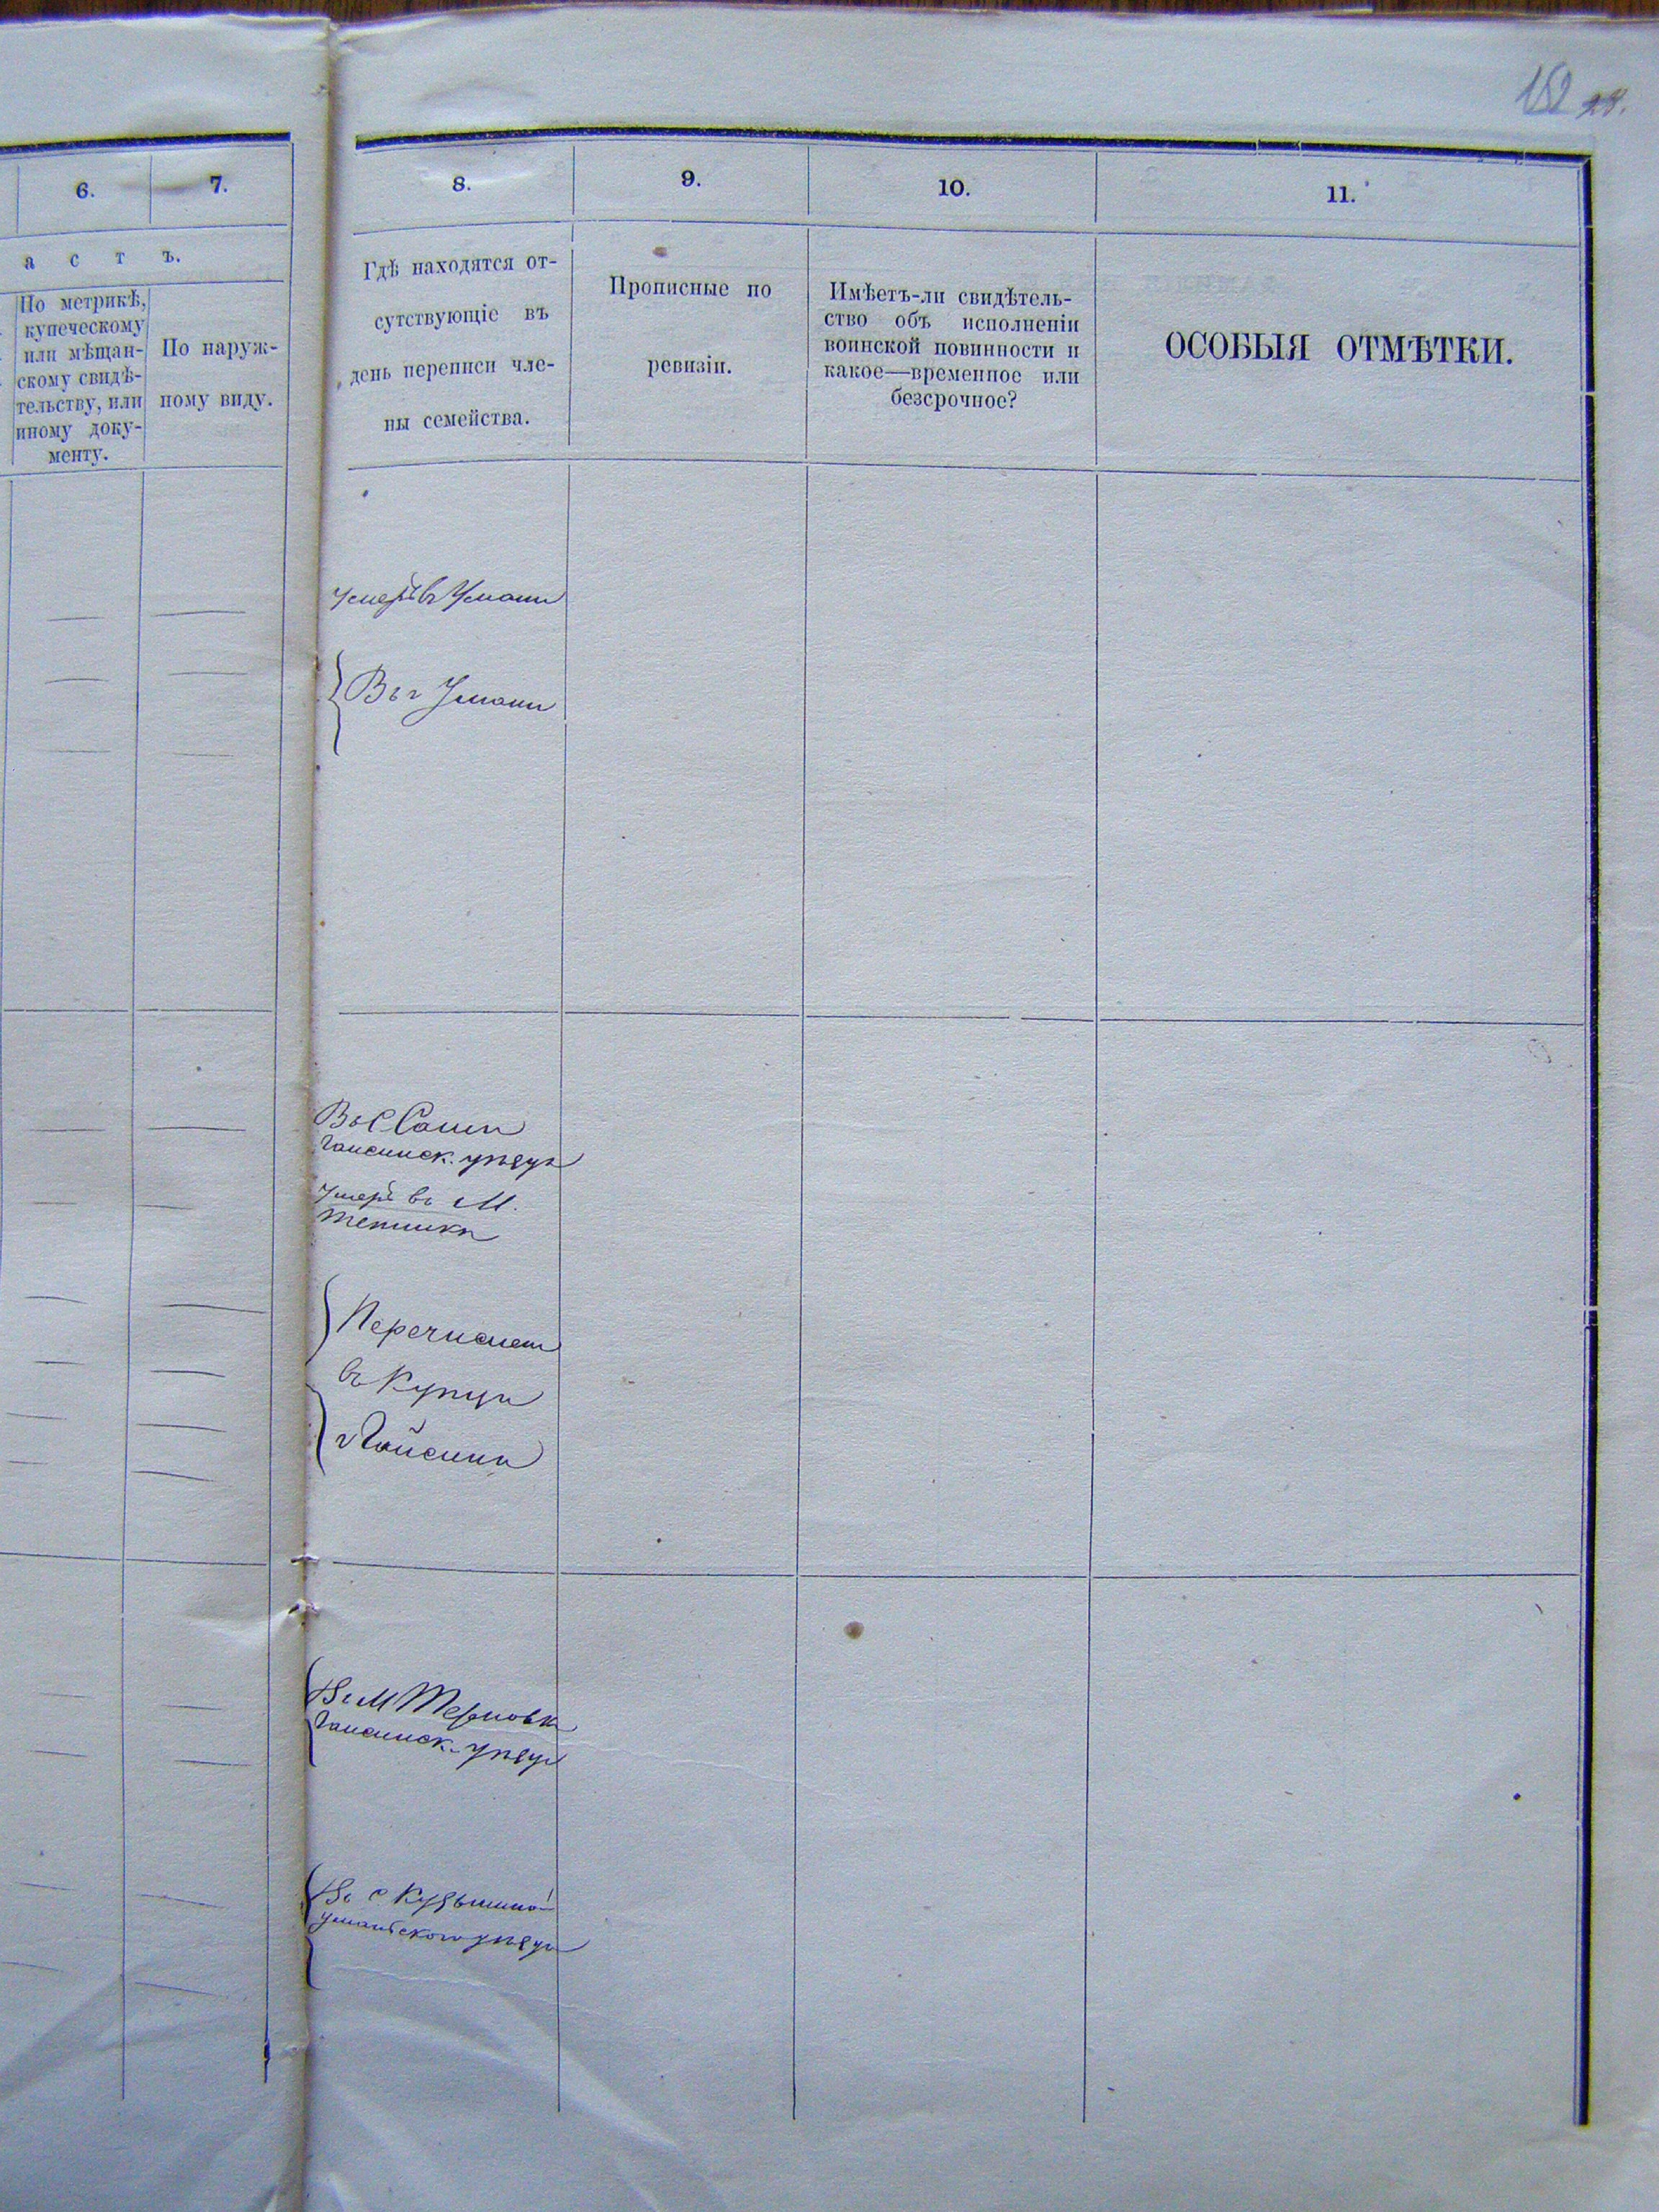 152 28.
6. 7. 8. 9. 10. 11.
а с т ъ.
По метрикѣ,
купеческому
или мѣщан-
скому свидѣ-
тельству, или
иному доку-
менту.
По наруж-
ному виду.
Гдѣ находятся от-
сутствующіе въ
день переписи чле-
ны семейства.
Прописные по
ревизіи.
Имѣетъ-ли свидѣтель-
ство объ исполненіи
воинской повинности и
какое—временное или
безсрочное?
ОСОБЫЯ ОТМѢТКИ.
Умеръ въ Умани
Въ г Умани
Въ С
Гайсинск. уѣзда
Умеръ въ М.
Тепликѣ
Перечислен
въ Купцы
г Гайсина
Въ М Терновкѣ
Гайсинск. уѣзда
Въ с
Уманьского уѣзда